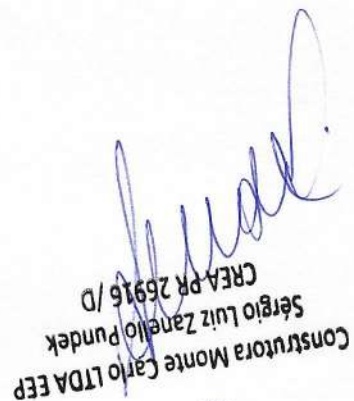 Construtora Monte Carlo LTDA EEP
Sérgio Luiz Zanello Pundek
CREA PR 26916 /D